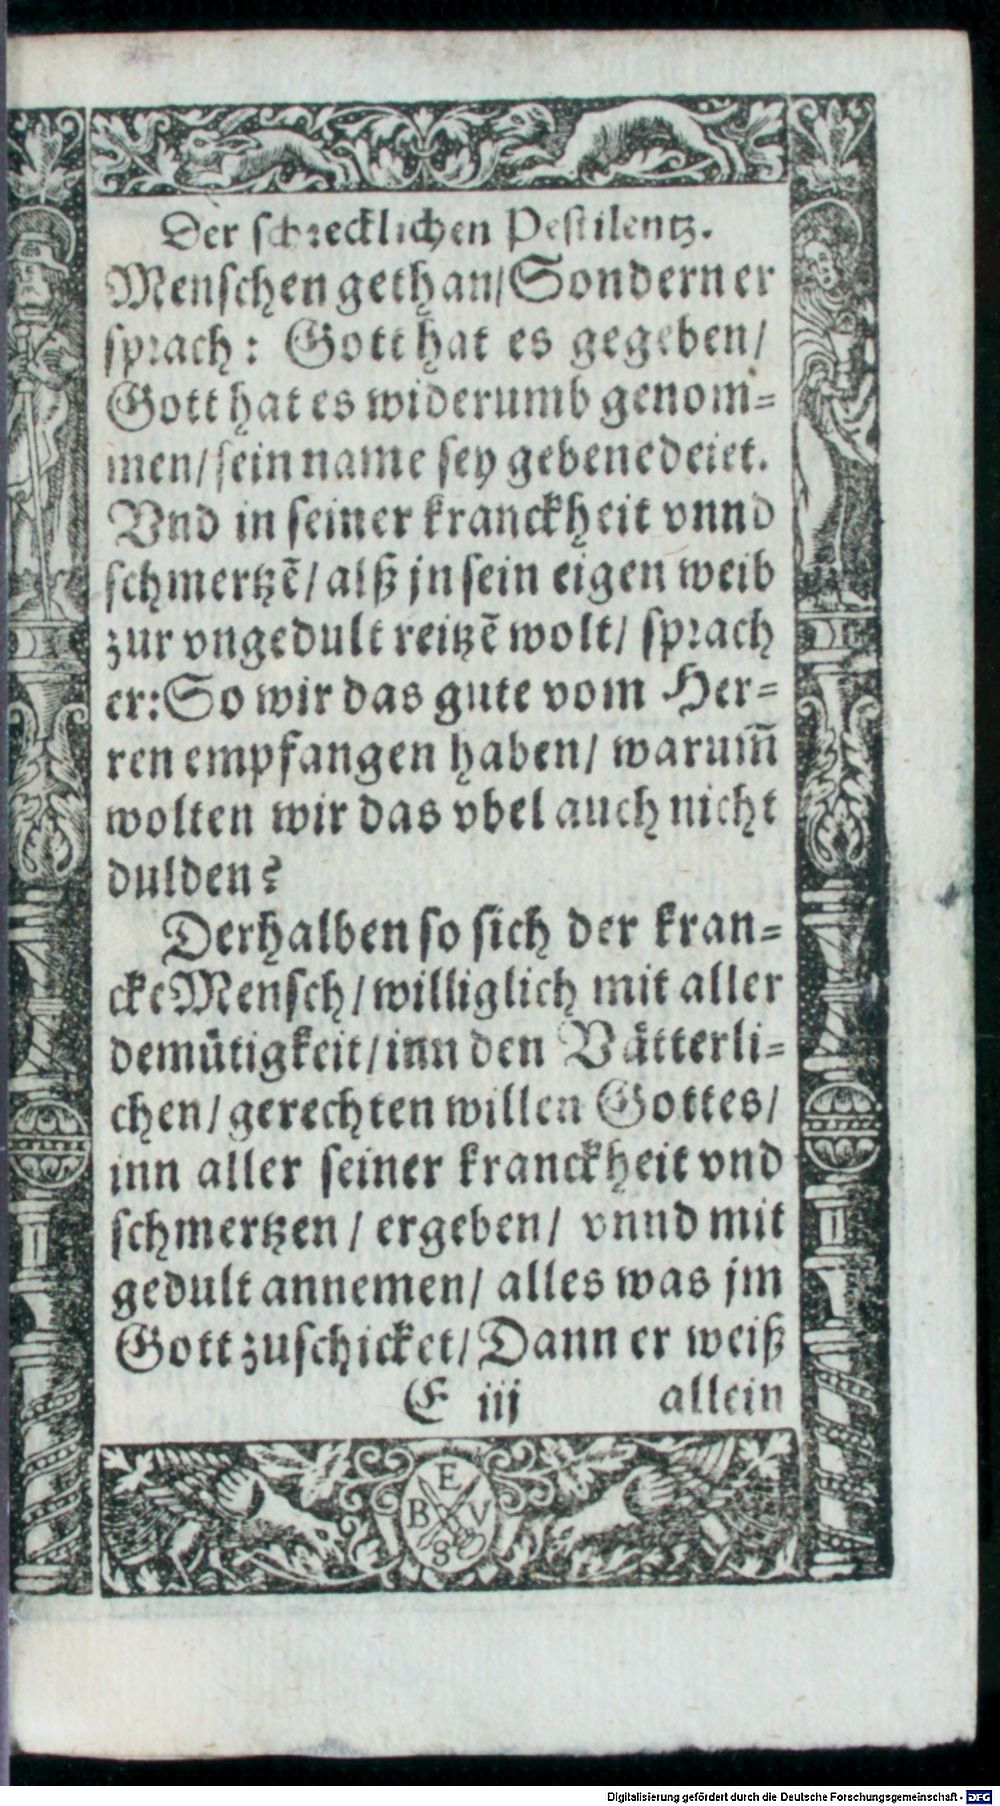 Der schrecklichen Pestilentz.
Menschen gethan/Sondern er
sprach: Gott hat es gegeben/
Gott hat es widerumb genom-
men/sein name sey gebenedeiet.
Vnd in seiner kranckheit vnnd
schmertzẽ/alß jn sein eigen weib
zur vngedult reitzẽ wolt/ sprach
er:So wir das gute vom Her-
ren empfangen haben/ warum̃
wolten wir das vbel auch nicht
dulden?
Derhalben so sich der kran-
cke Mensch/williglich mit aller
demütigkeit/inn den Vätterli-
chen/gerechten willen Gottes/
inn aller seiner kranckheit vnd
schmertzen/ ergeben/ vnnd mit
gedult annemen/ alles was jm
Gott zuschicket/Dann er weiß
E iij allein
E
B V
S
Digitalisierung gefördert durch die Deutsche Forschungsgemeinschaft - DFG